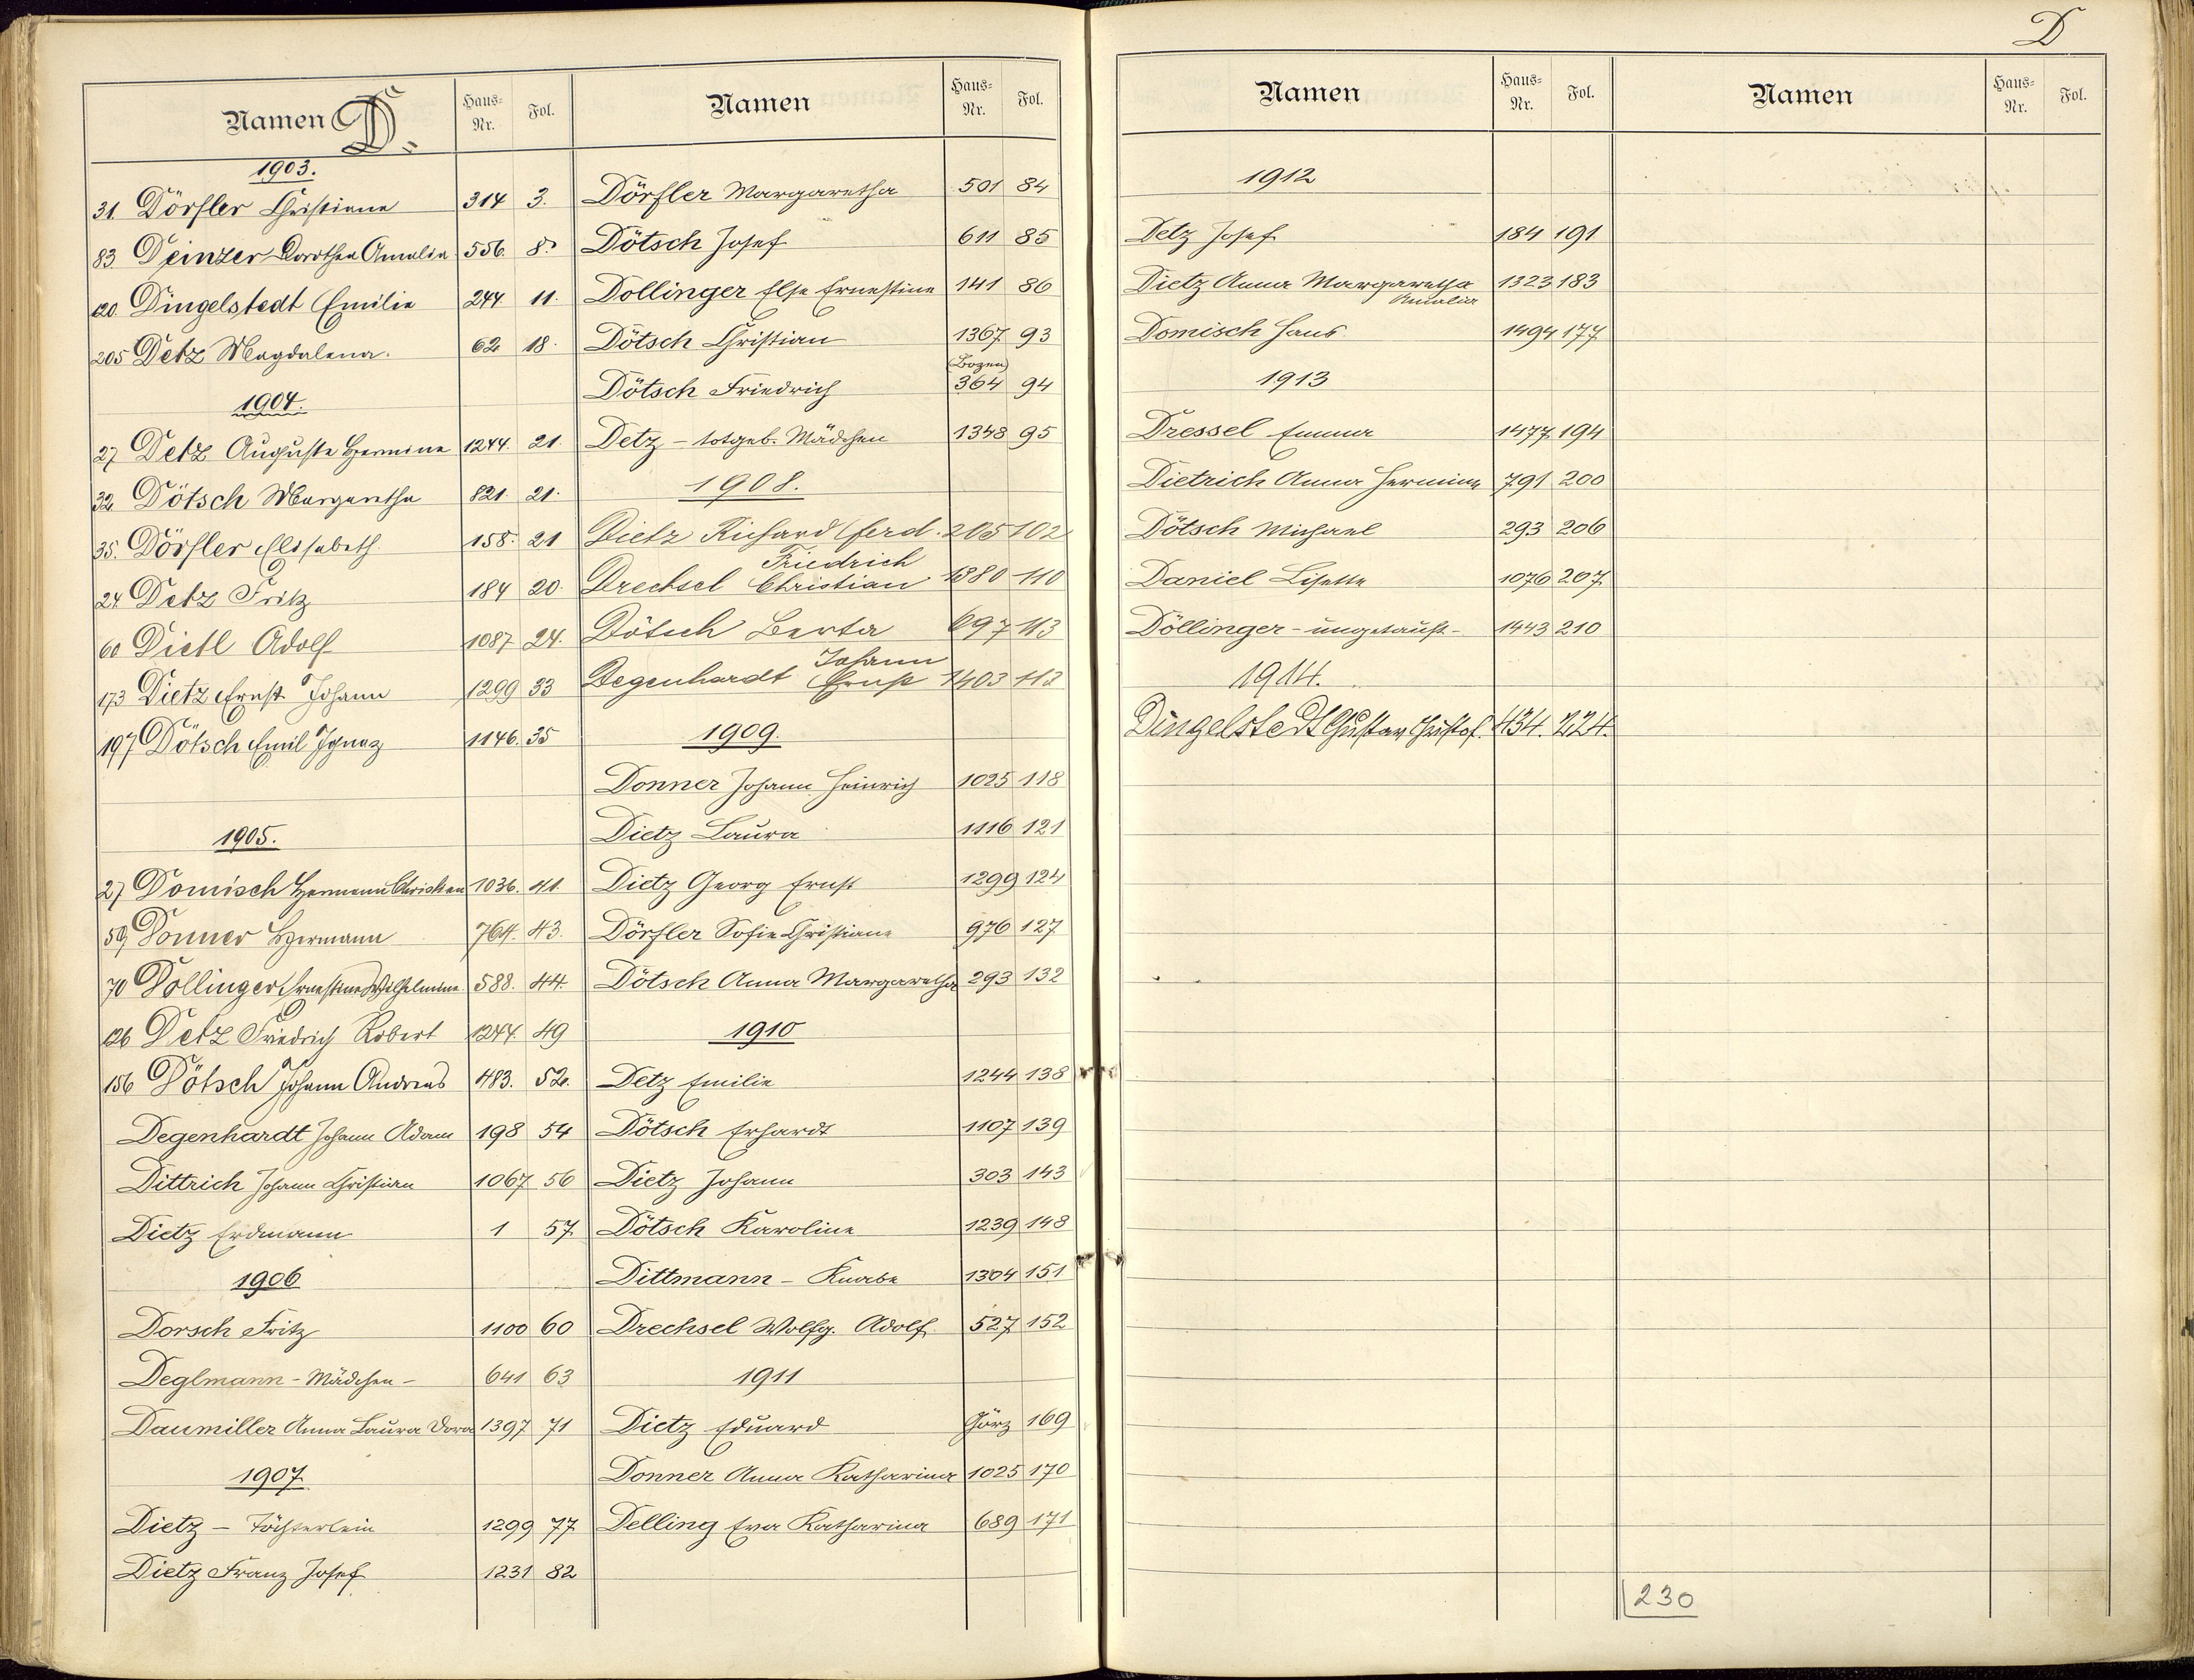 D
Namen D. Haus-Nr. Fol.
1903.
31. Dörfler Christiane 314 3.
83 Deinzer Dorothea Amalia 556. 8.
120. Dingelstedt Emilie 244 11.
205 Detz Magdalena. 62 18.
1904.
27 Detz Auguste Hermine 1244. 21.
32 Dötsch Margaretha 821. 21.
35. Dörfler Elisabeth. 158. 21
24 Detz Fritz 184 20.
60 Dietl Adolf 1087 24.
173 Dietz Ernst Johann 1299 33
197 Dötsch Emil Ignaz 1146. 35
1905.
27 Domisch Hermann Christian 1036. 41.
59 Donner Hermann 764. 43.
70 Döllinger Ernestine Wilhelmine 588. 44.
126 Detz Friedrich Robert 1244. 49
156 Dötsch Johann Andreas 483. 52.
Degenhardt Johann Adam 198 54
Dittrich Johann Christian 1067 56
Dietz Erdmann 1 57
1906
Dorsch Fritz 1100 60
Deglmann - Mädchen - 641 63
Daumiller Anna Laura Dora 1397 71
1907
Dietz - Töchterlein 1299 77
Dietz Franz Josef 1231 82
Namen Haus-Nr. Fol.
Dörfler Margaretha 501 84
Dötsch Josef 611 85
Döllinger Else Ernestine 141 86
Dötsch Christian 1367 93
(Bozen)
Dötsch Friedrich 364 94
Detz - totgeb. Mädchen 1348 95
1908.
Dietz Richard Ferd. 205 102
Friedrich
Drechsel Christian 1380 110
Dötsch Berta 697 113
Johann
Degenhardt Ernst 1403 113
1909.
Donner Johann Heinrich 1025 118
Dietz Laura 1116 121
Dietz Georg Ernst 1299 124
Dörfler Sofie Christiane 976 127
Dötsch Anna Margaretha 293 132
1910
Detz Emilie 1244 138
Dötsch Erhardt 1107 139
Dietz Johann 303 143
Dötsch Karoline 1239 148
Dittmann - Knabe 1304 151
Drechsel Wolfg. Adolf 527 152
1911
Dietz Eduard Görz 169
Donner Anna Katharina 1025 170
Delling Eva Katharina 689 171
Namen Haus-Nr. Fol.
1912
Detz Josef 184 191
Dietz Anna Margaretha 1323 183
Amalia
Domisch Hans 1494 177
1913
Dressel Emma 1477 194
Dietrich Anna Hermine 791 200
Dötsch Michael 293 206
Daniel Lisette 1076 207
Döllinger - ungetauft - 1443 210
1914.
Dingelstedt Gustav Christof. 434. 224.
Namen Haus-Nr. Fol.
230